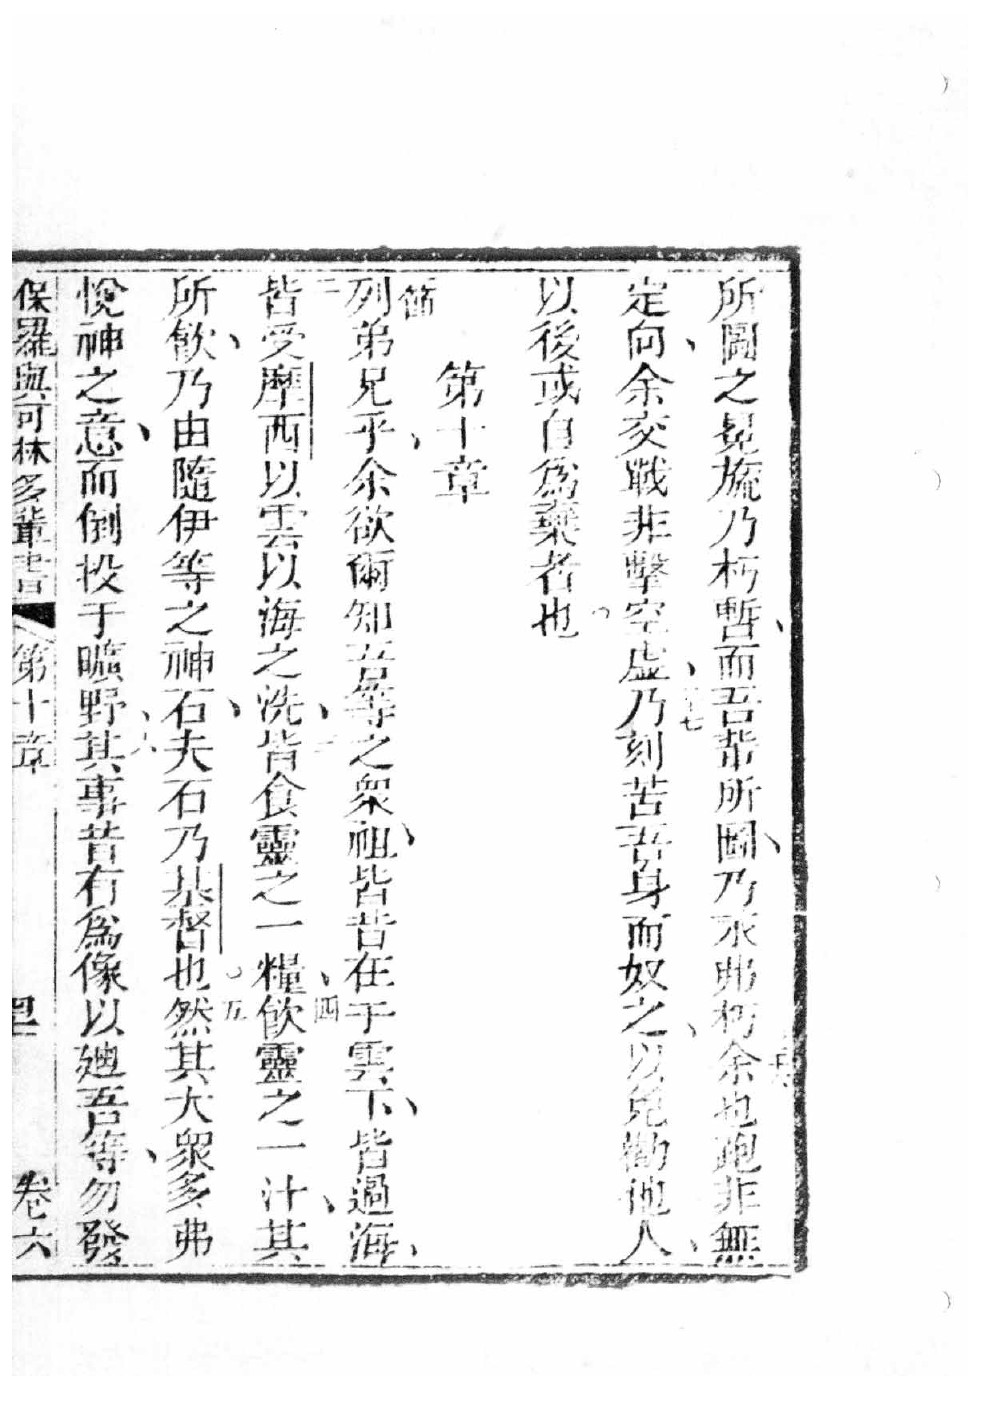 所圖之冕旒乃朽暫而吾輩所圖乃永弗朽余也跑非無
定向余交戰非擊空虛乃刻苦吾身而奴之以免勸他人
以後或自為棄者也
第十章
列弟兄乎余欲爾知吾等之眾祖皆昔在于雲下皆過海
皆受摩西以雲以海之洗皆食靈之一糧飲靈之一汁其
所飲乃由隨伊等之神石夫石乃基督也然其大眾多弗
悅神之意而倒投于曠野其事昔有為像以廸吾等勿發
保羅與可林多輩書 第十章 卷六